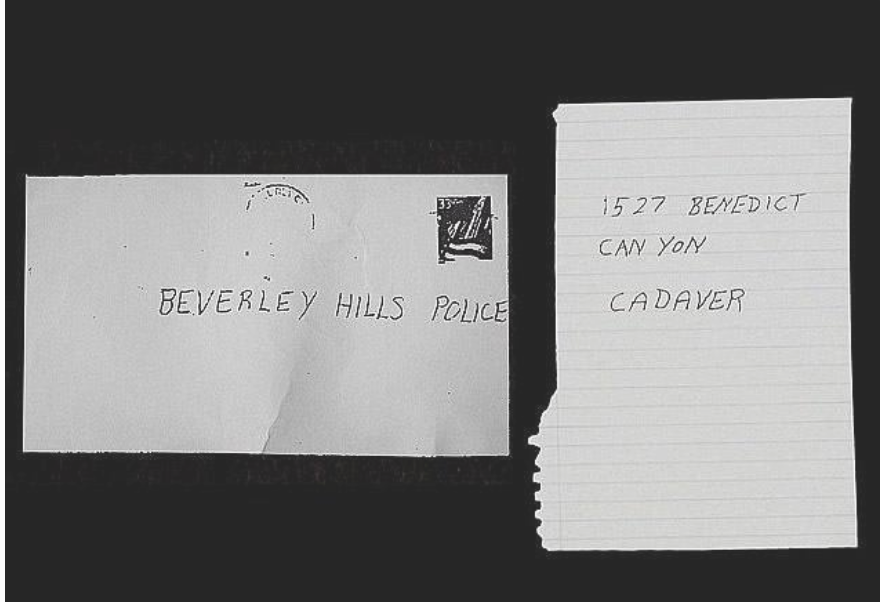 33
BEVERLEY HILLS POLICE
1527 BENEDICT
CAN YON
CADAVER